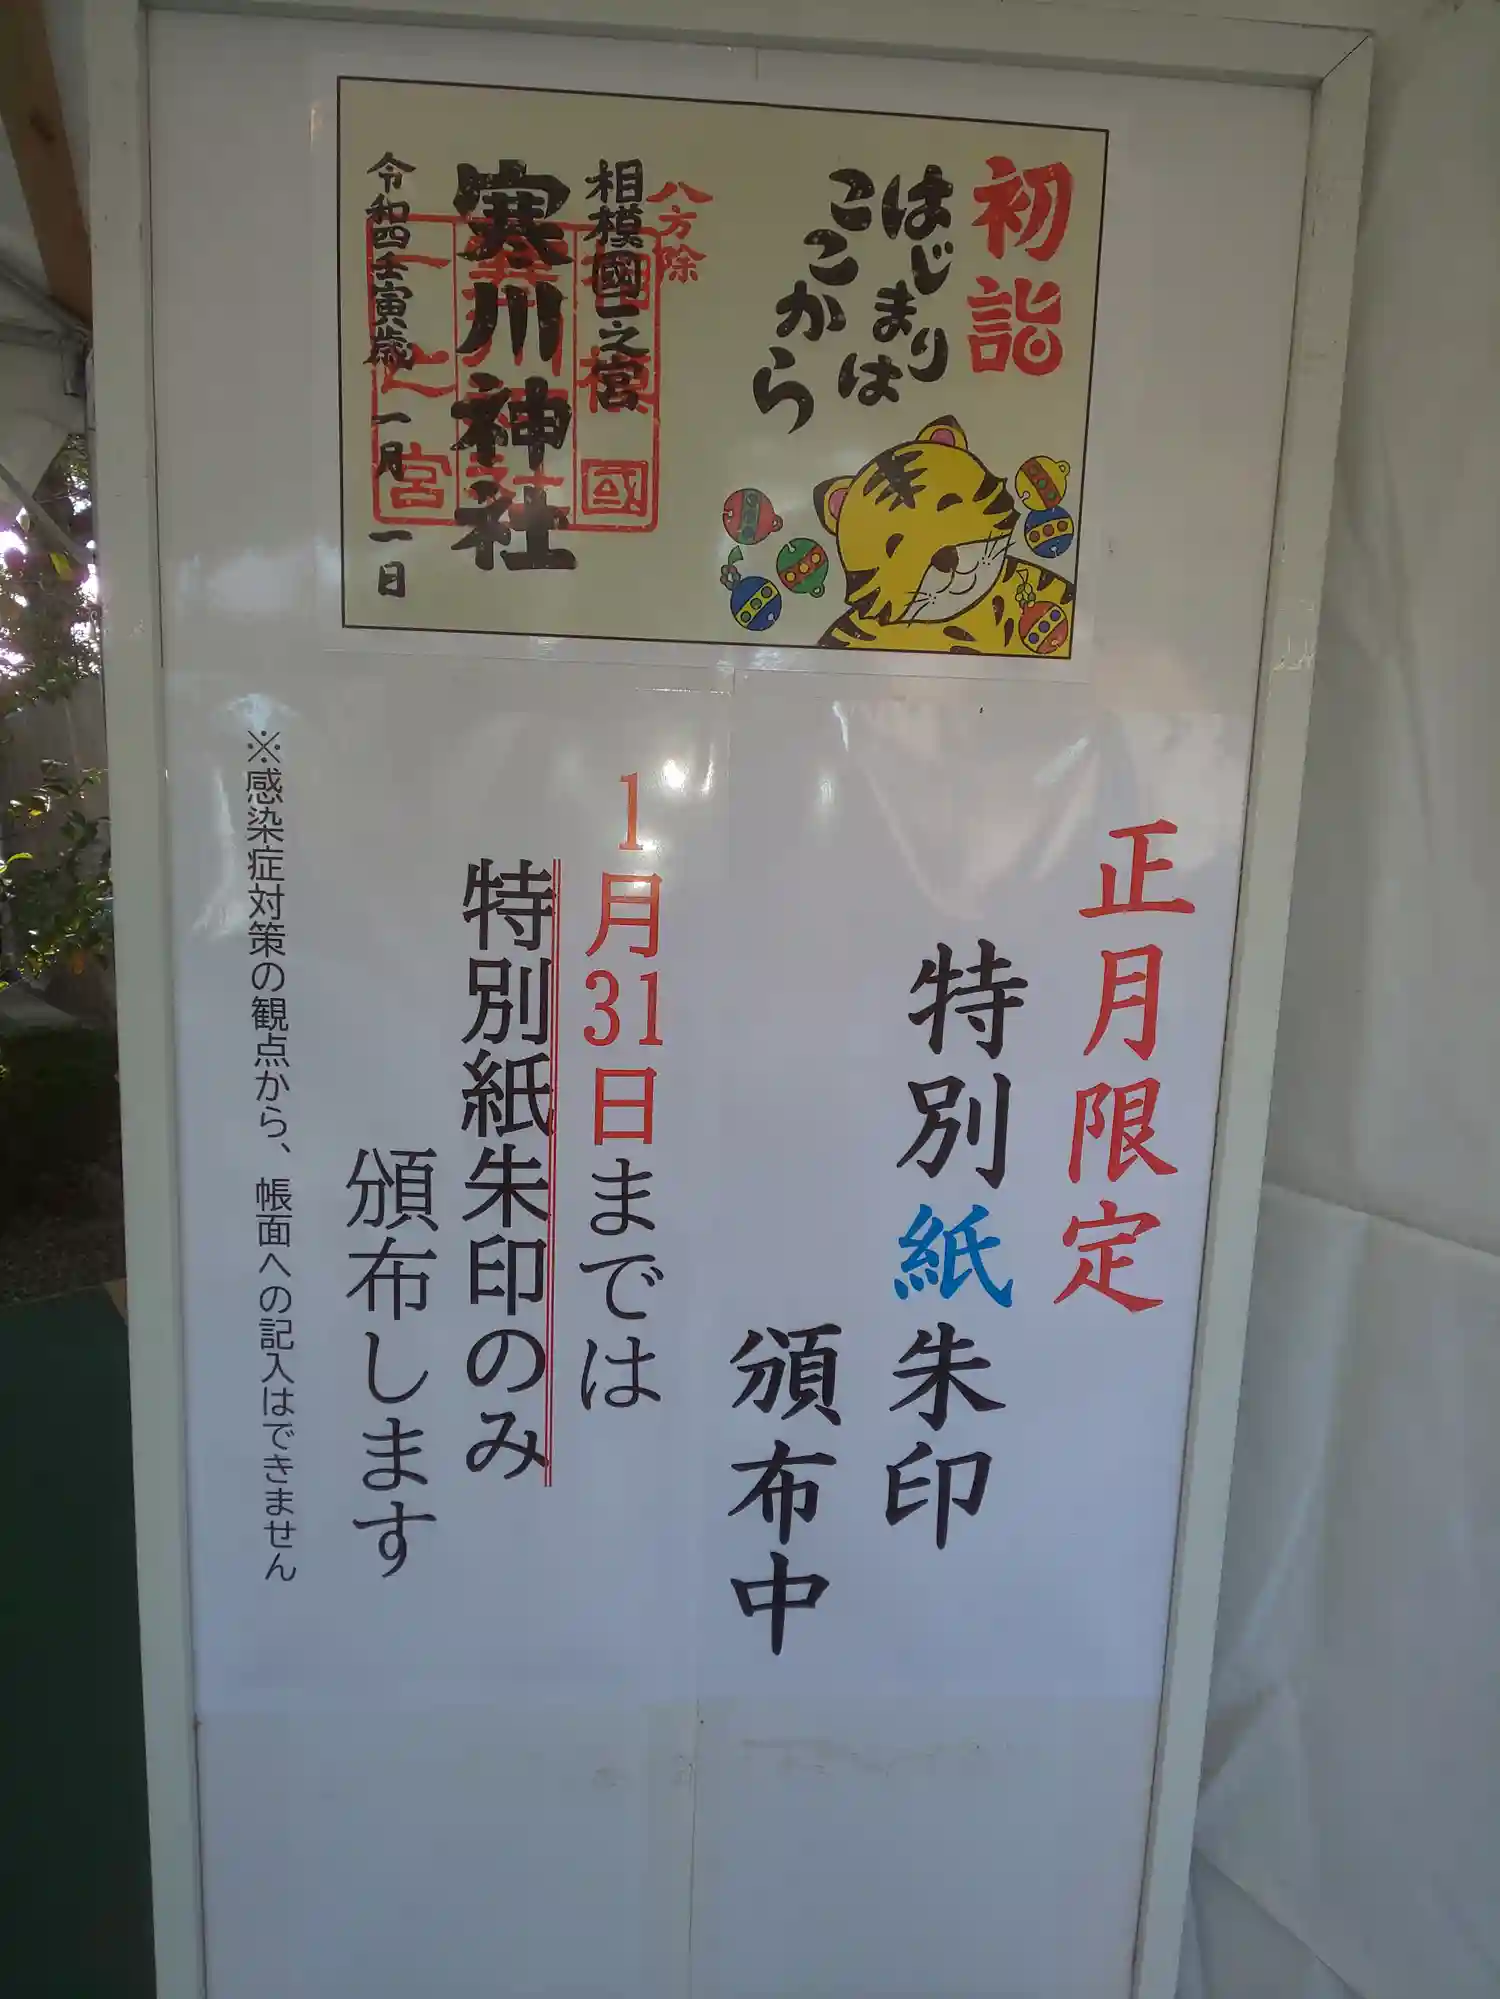 初詣
はじまりは
ここから
八方除
相模國一之宮
寒川神社
令和四壬寅歳 一月 一日
相模國
寒川神社
一之宮
正月限定
特別紙朱印
頒布中
1月31日までは
特別紙朱印のみ
頒布します
※感染症対策の観点から、帳面への記入はできません